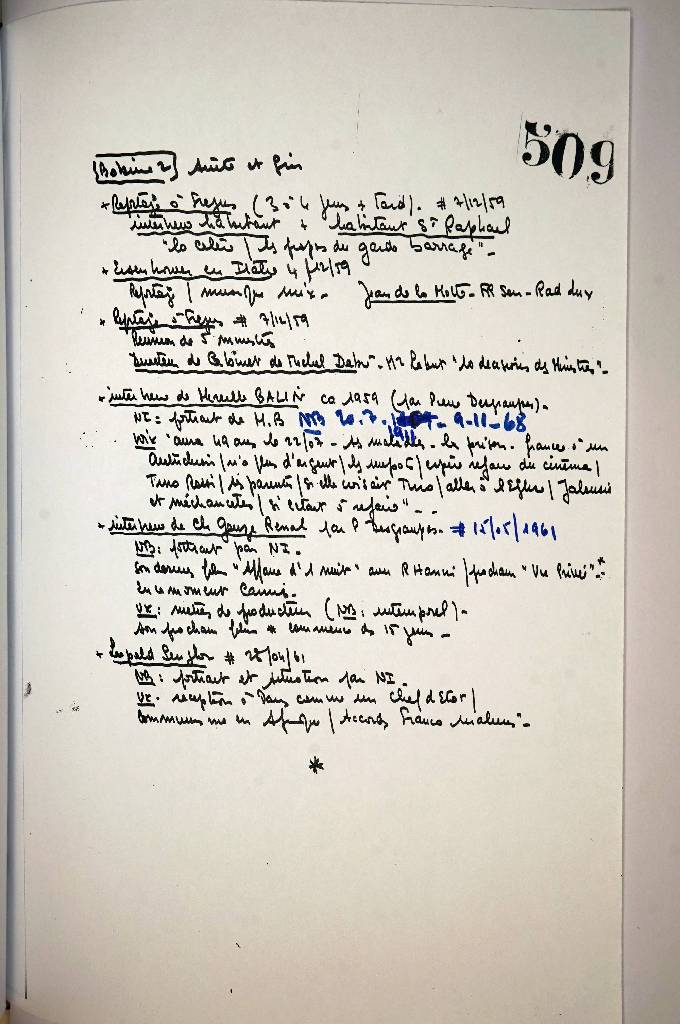 509
[Bobine 2] suite et fin
+ Reportage à Frejus (3 à 4 jours + Tard). # 7/12/59
interview habitant + habitant St Raphael
"la colère / les propos du garde barrage" -
+ Eisenhower en Italie 4/12/59
Reportage / musique mix - Jean de la Motte - RR Sen - Rad Lux
+ Reportage à Frejus # 7/12/59
Reunion de 5 ministres
Directeur de Cabinet de Michel Debré - Mr "les decisions des Ministres" -
+ interview de Mireille BALIN ca 1959 (par Pierre Desgraupes) -
NI: portrait de M.B NB 20.7.1911 - 9-11-68
Voix "aura 49 ans le 22/07 - les maladies - la prison - france à un
Autrichien / n'a plus d'argent / les impots / espère refaire du cinema /
Tino Rossi / les parents / si elle croisait Tino / aller à l'Eglise / Jalousie
et méchancetés / si c'etait à refaire" -
+ interview de Ch Gouze Renal par P Desgraupes - # 15/05/1961
NB: portrait par NI -
Son dernier film "Affaire d'1 nuit" avec R Hanin / prochain "Vie Privée" - *
En ce moment Cannes -
VX: metier de producteur (NB: intemporel) -
son prochain film * commence ds 15 jours -
+ Leopold Senghor # 28/04/61
NB: portrait et situation par NI -
VX - reception à Paris comme un Chef d'Etat /
Communisme en Afrique / Accords Franco maliens" -
*